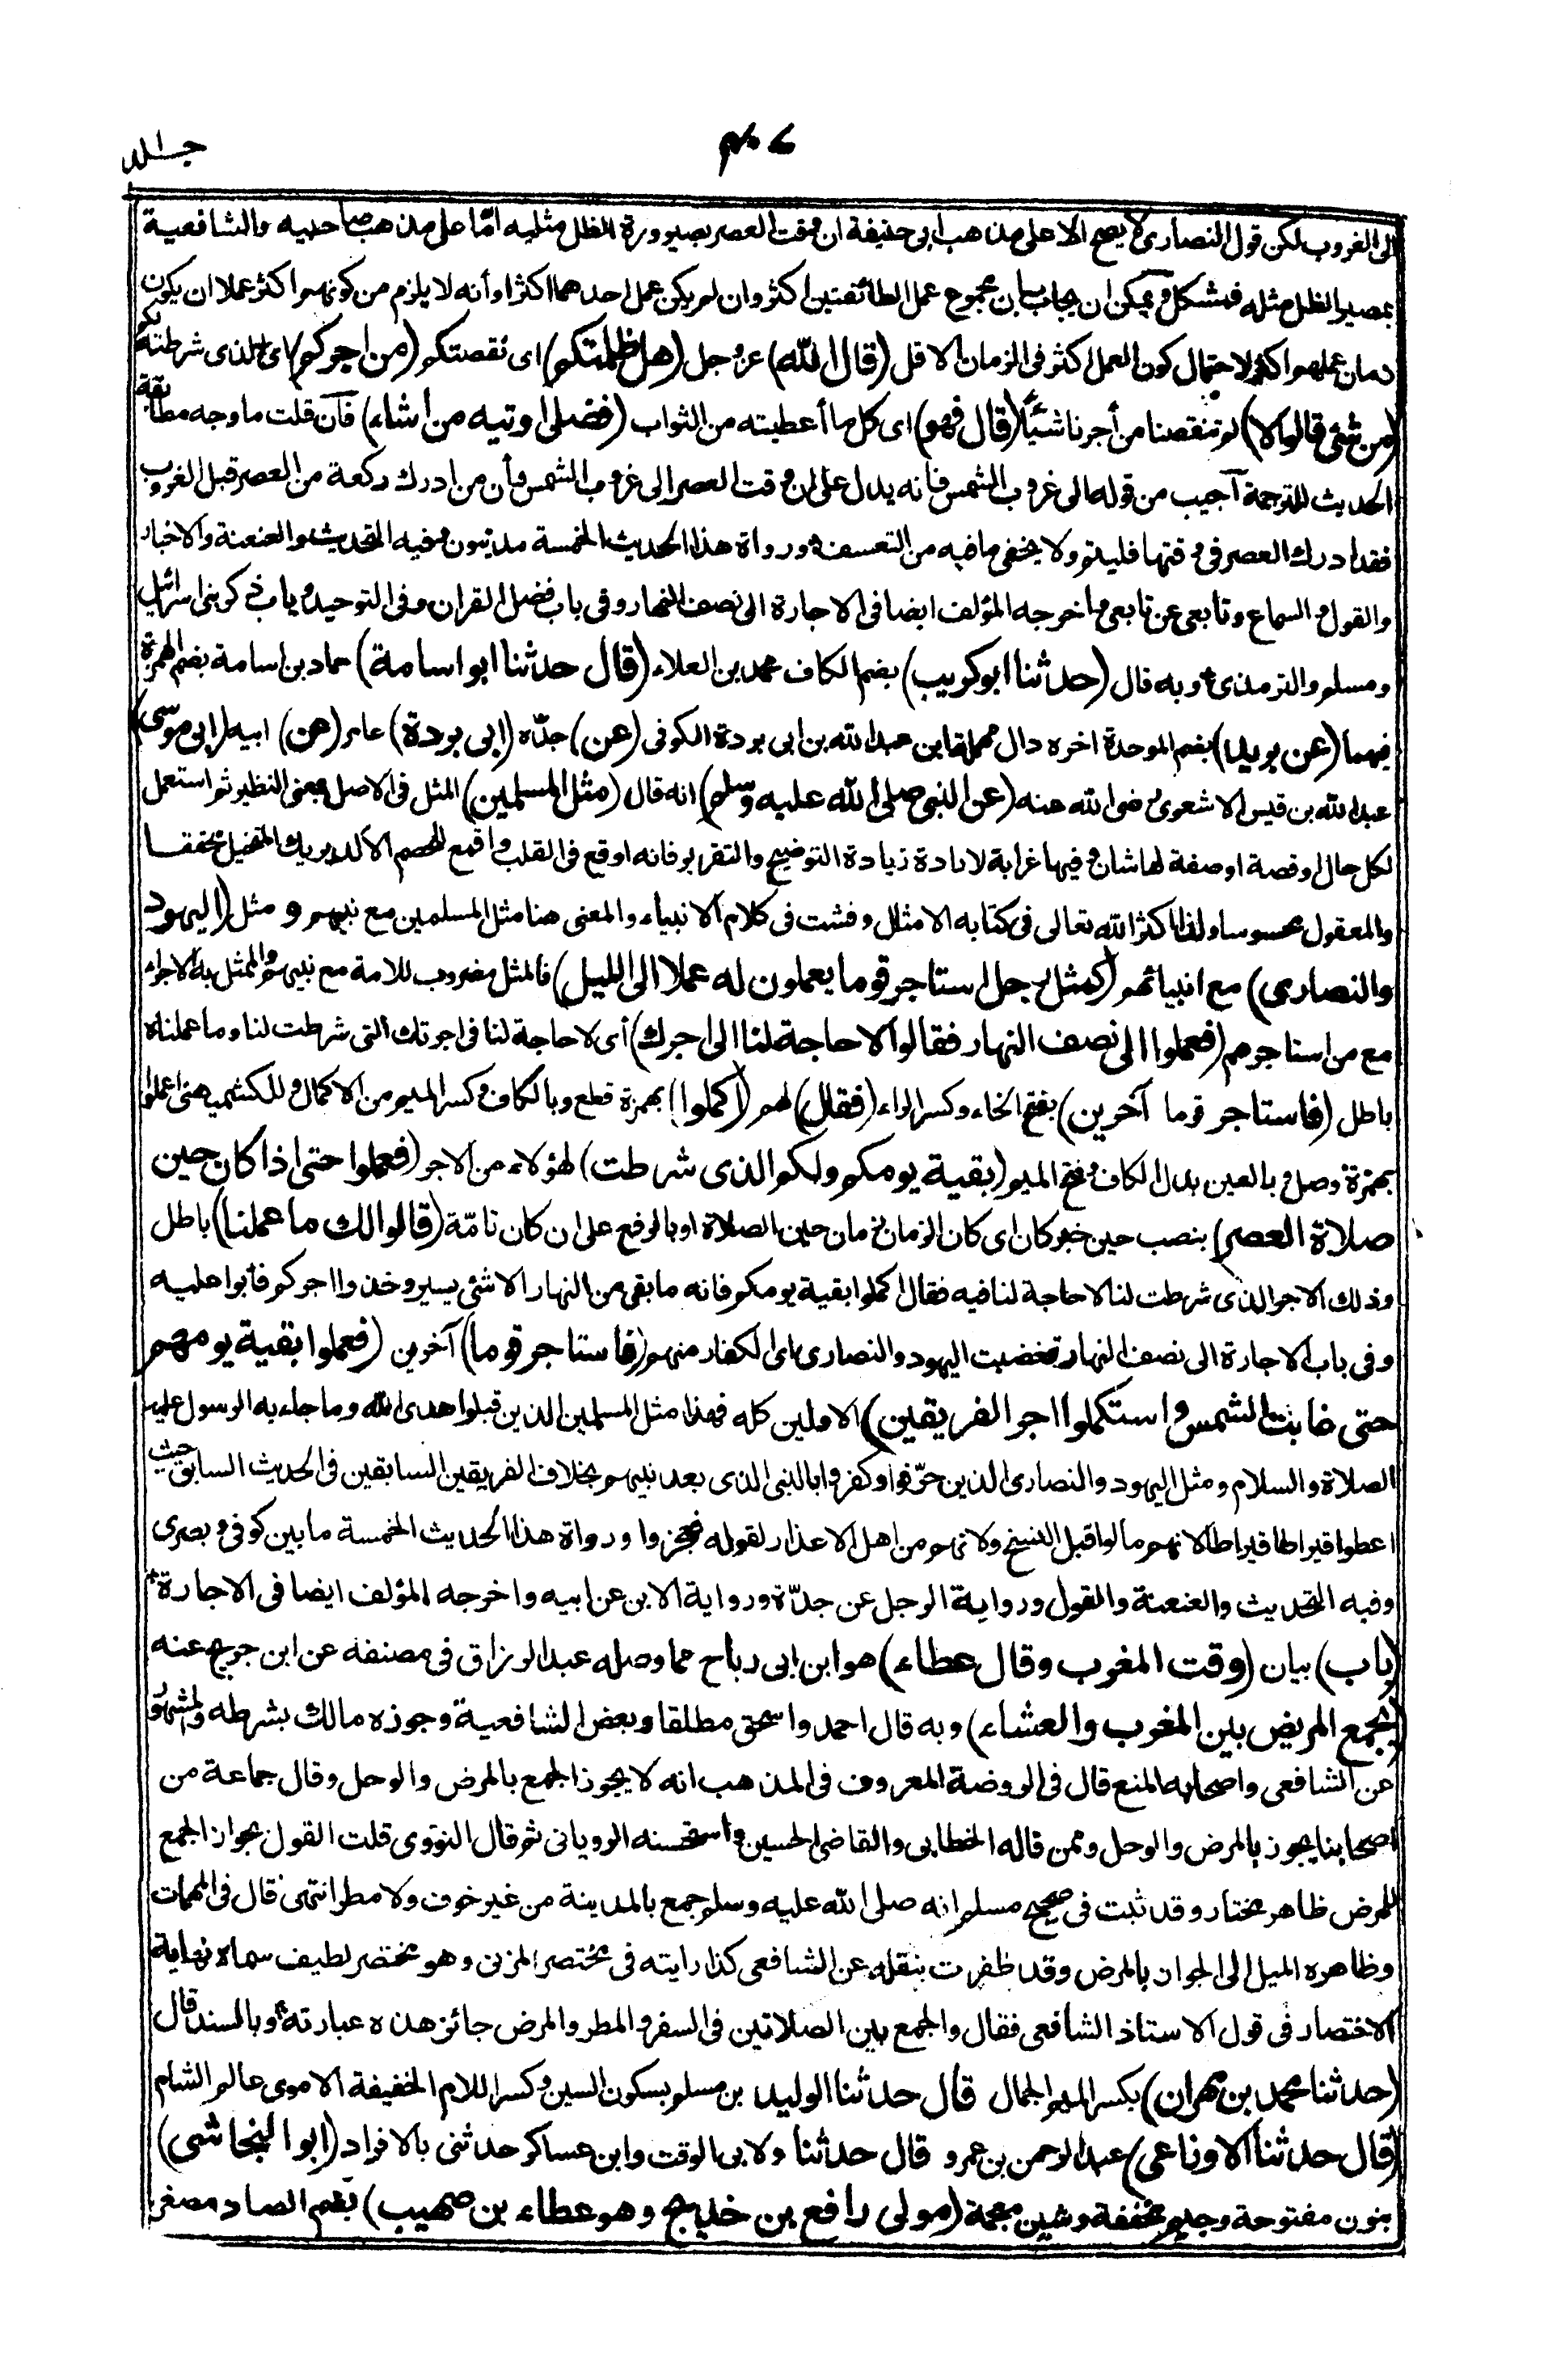 جلد ١
٤٠٧
الى الغروب لكن قول النصارى لا يصح الا على مذهب ابى حنيفة ان وقت العصر بصيرورة الظل مثليه امّا على مذهب صاحبيه والشافعية
بمصير الظل مثله فمشكل ويمكن ان يجاب بان مجموع عمل الطائفتين اكثر وان لم يكن عمل احدهما اكثر او أنه لا يلزم من كونهم اكثر عملا ان يكون
زمان عملهم اكثر لاحتمال كون العمل اكثر فى الزمان الاقل (قال الله) عز وجل (هل ظلمتكم) اى نقصتكم (من اجركم) اى الذى شرطته لكم
(من شئ قالوا لا) لم تنقصنا من أجرنا شيأ (قال فهو) اى كل ما أعطيته من الثواب (فضلى اوتيه من أشاء) فان قلت ما وجه مطابقة
الحديث للترجمة أجيب من قوله الى غروب الشمس فانه يدل على ان وقت العصر الى غروب الشمس وأن من ادرك ركعة من العصر قبل الغروب
فقد ادرك العصر فى وقتها فليتم ولا يخفى ما فيه من التعسف ورواة هذا الحديث الخمسة مدنيون وفيه التحديث والعنعنة والاخبار
والقول والسماع وتابعى عن تابعى واخرجه المؤلف ايضا فى الاجارة الى نصف النهار وفى باب فضل القران وفى التوحيد وباب ذكر بنى اسرائيل
ومسلم والترمذى وبه قال (حدثنا ابو كريب) بضم الكاف محمد بن العلاء (قال حدثنا ابو اسامة) حماد بن اسامة بضم الهمزة
فيهما (عن بريد) بضم الموحدة اخره دال مهملة ابن عبد الله بن ابى بردة الكوفى (عن) جدّه (ابى بردة) عامر (عن) ابيه (ابى موسى)
عبد الله بن قيس الاشعرى رضى الله عنه (عن النبى صلى الله عليه وسلم) انه قال (مثل المسلمين) المثل فى الاصل بمعنى النظير ثم استعمل
لكل حال او قصة او صفة لها شان وفيها غرابة لارادة زيادة التوضيح والتقرير فانه اوقع فى القلب واقمع للخصم الألد يريك المتخيل محققا
والمعقول محسوسا ولذا اكثر الله تعالى فى كتابه الامثال وفشت فى كلام الانبياء والمعنى هنا مثل المسلمين مع نبيهم و مثل (اليهود
والنصارى) مع انبيائهم (كمثل رجل استاجر قوما يعملون له عملا الى الليل) فالمثل مضروب للامة مع نبيهم والممثل به الاجراء
مع من استاجرهم (فعملوا الى نصف النهار فقالوا لا حاجة لنا الى اجرك) أى لا حاجة لنا فى اجرتك التى شرطت لنا وما عملناه
باطل (فاستاجر قوما آخرين) بفتح الخاء وكسر الراء (فقال) لهم (اكملوا) بهمزة قطع وبالكاف وكسر الميم من الاكمال وللكشميهنى اعملوا
بهمزة وصل وبالعين بدل الكاف وفتح الميم (بقية يومكم ولكم الذى شرطت) لهؤلاء من الاجر (فعملوا حتى اذا كان حين
صلاة العصر) بنصب حين خبر كان اى كان الزمان زمان حين الصلاة او بالرفع على ان كان تامّة (قالوا لك ما عملنا) باطل
وذلك الاجر الذى شرطت لنا لا حاجة لنا فيه فقال اكملوا بقية يومكم فانه ما بقى من النهار الا شئ يسير وخذوا اجركم فأبوا عليه
وفى باب الاجارة الى نصف النهار فغضبت اليهود والنصارى اى الكفار منهم (فاستاجر قوما) آخرين (فعملوا بقية يومهم
حتى غابت الشمس واستكملوا اجر الفريقين) الاولين كله فهذا مثل المسلمين الذين قبلوا هدى الله وما جاء به الرسول عليه
الصلاة والسلام ومثل اليهود والنصارى الذين حرّفوا وكفروا بالنبى الذى بعد نبيهم بخلاف الفريقين السابقين فى الحديث السابق حيث
اعطوا قيراطا قيراطا لانهم ماتوا قبل النسخ ولانهم من اهل الاعذار لقوله فعجزوا ورواة هذا الحديث الخمسة ما بين كوفى وبصرى
وفيه التحديث والعنعنة والقول ورواية الرجل عن جدّه ورواية الابن عن ابيه واخرجه المؤلف ايضا فى الاجارة *
(باب) بيان (وقت المغرب وقال عطاء) هو ابن ابى رباح مما وصله عبد الرزاق فى مصنفه عن ابن جريج عنه
(يجمع المريض بين المغرب والعشاء) وبه قال احمد واسحق مطلقا وبعض الشافعية وجوزه مالك بشرطه والمشهور
عن الشافعى واصحابه المنع قال فى الروضة المعروف فى المذهب انه لا يجوز الجمع بالمرض والوحل وقال جماعة من
اصحابنا يجوز بالمرض والوحل وممن قاله الخطابى والقاضى الحسين واستحسنه الرويانى ثم قال النووى قلت القول بجواز الجمع
للمرض ظاهر مختار وقد ثبت فى صحيح مسلم انه صلى الله عليه وسلم جمع بالمدينة من غير خوف ولا مطر انتهى قال فى المهمات
وظاهره الميل الى الجواز بالمرض وقد ظفرت بنقله عن الشافعى كذا رايته فى مختصر المزنى وهو مختصر لطيف سماه نهاية
الاختصار فى قول الاستاذ الشافعى فقال والجمع بين الصلاتين فى السفر والمطر والمرض جائز هذه عبارته وبالسند قال
(حدثنا محمد بن مهران) بكسر الميم الجمال قال حدثنا الوليد بن مسلم بسكون السين وكسر اللام الخفيفة الاموى عالم الشام
(قال حدثنا الاوزاعى) عبد الرحمن بن عمرو قال حدثنا ولابى الوقت وابن عساكر حدثنى بالافراد (ابو النجاشى)
بنون مفتوحة وجيم مخففة وشين معجمة (مولى رافع بن خديج وهو عطاء بن صهيب) بضم الصاد مصغرا